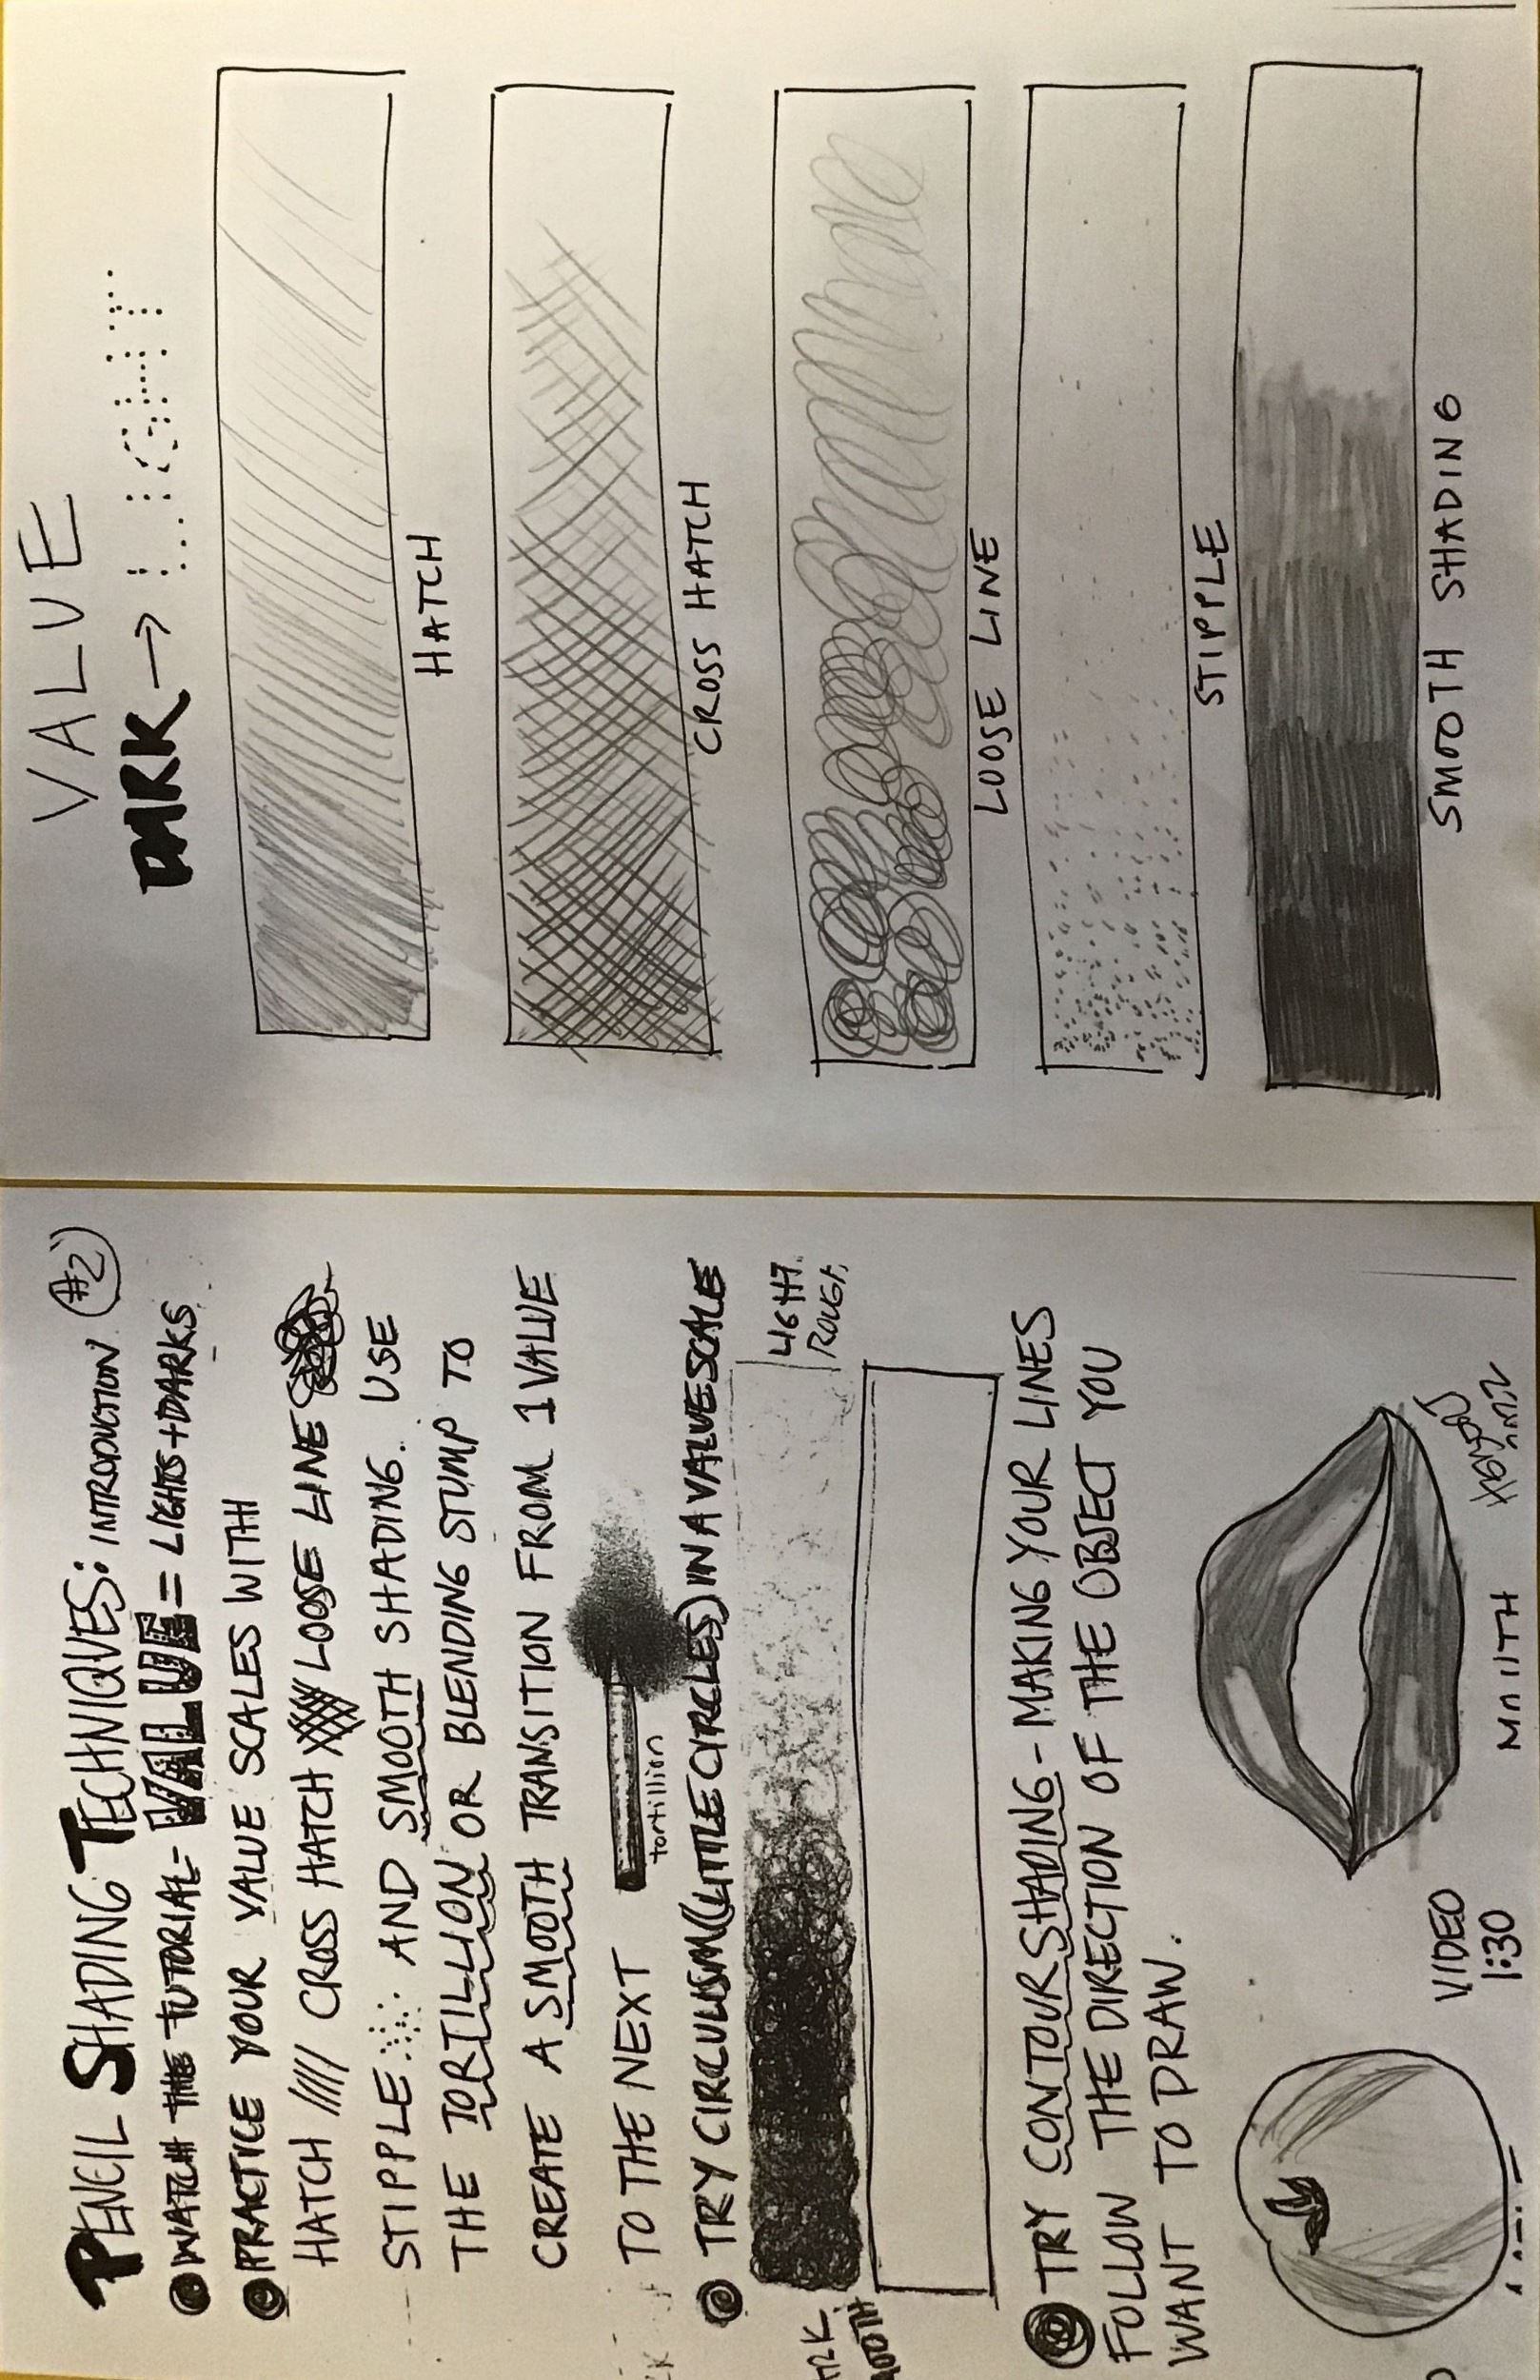 PENCIL SHADING TECHNIQUES: INTRODUCTION #2
WATCH THE TUTORIAL- VALUE = LIGHTS+DARKS
PRACTICE YOUR VALUE SCALES WITH
HATCH //// CROSS HATCH LOOSE LINE
STIPPLE AND SMOOTH SHADING. USE
THE TORTILLION OR BLENDING STUMP TO
CREATE A SMOOTH TRANSITION FROM 1 VALUE
TO THE NEXT
tortillion
TRY CIRCULISM (LITTLE CIRCLES) IN A VALUE SCALE
LIGHT
ROUGH
TRY CONTOUR SHADING - MAKING YOUR LINES
FOLLOW THE DIRECTION OF THE OBJECT YOU
WANT TO DRAW.
VIDEO
1:30
MOUTH
VALUE
DARK → LIGHT
HATCH
CROSS HATCH
LOOSE LINE
STIPPLE
SMOOTH SHADING